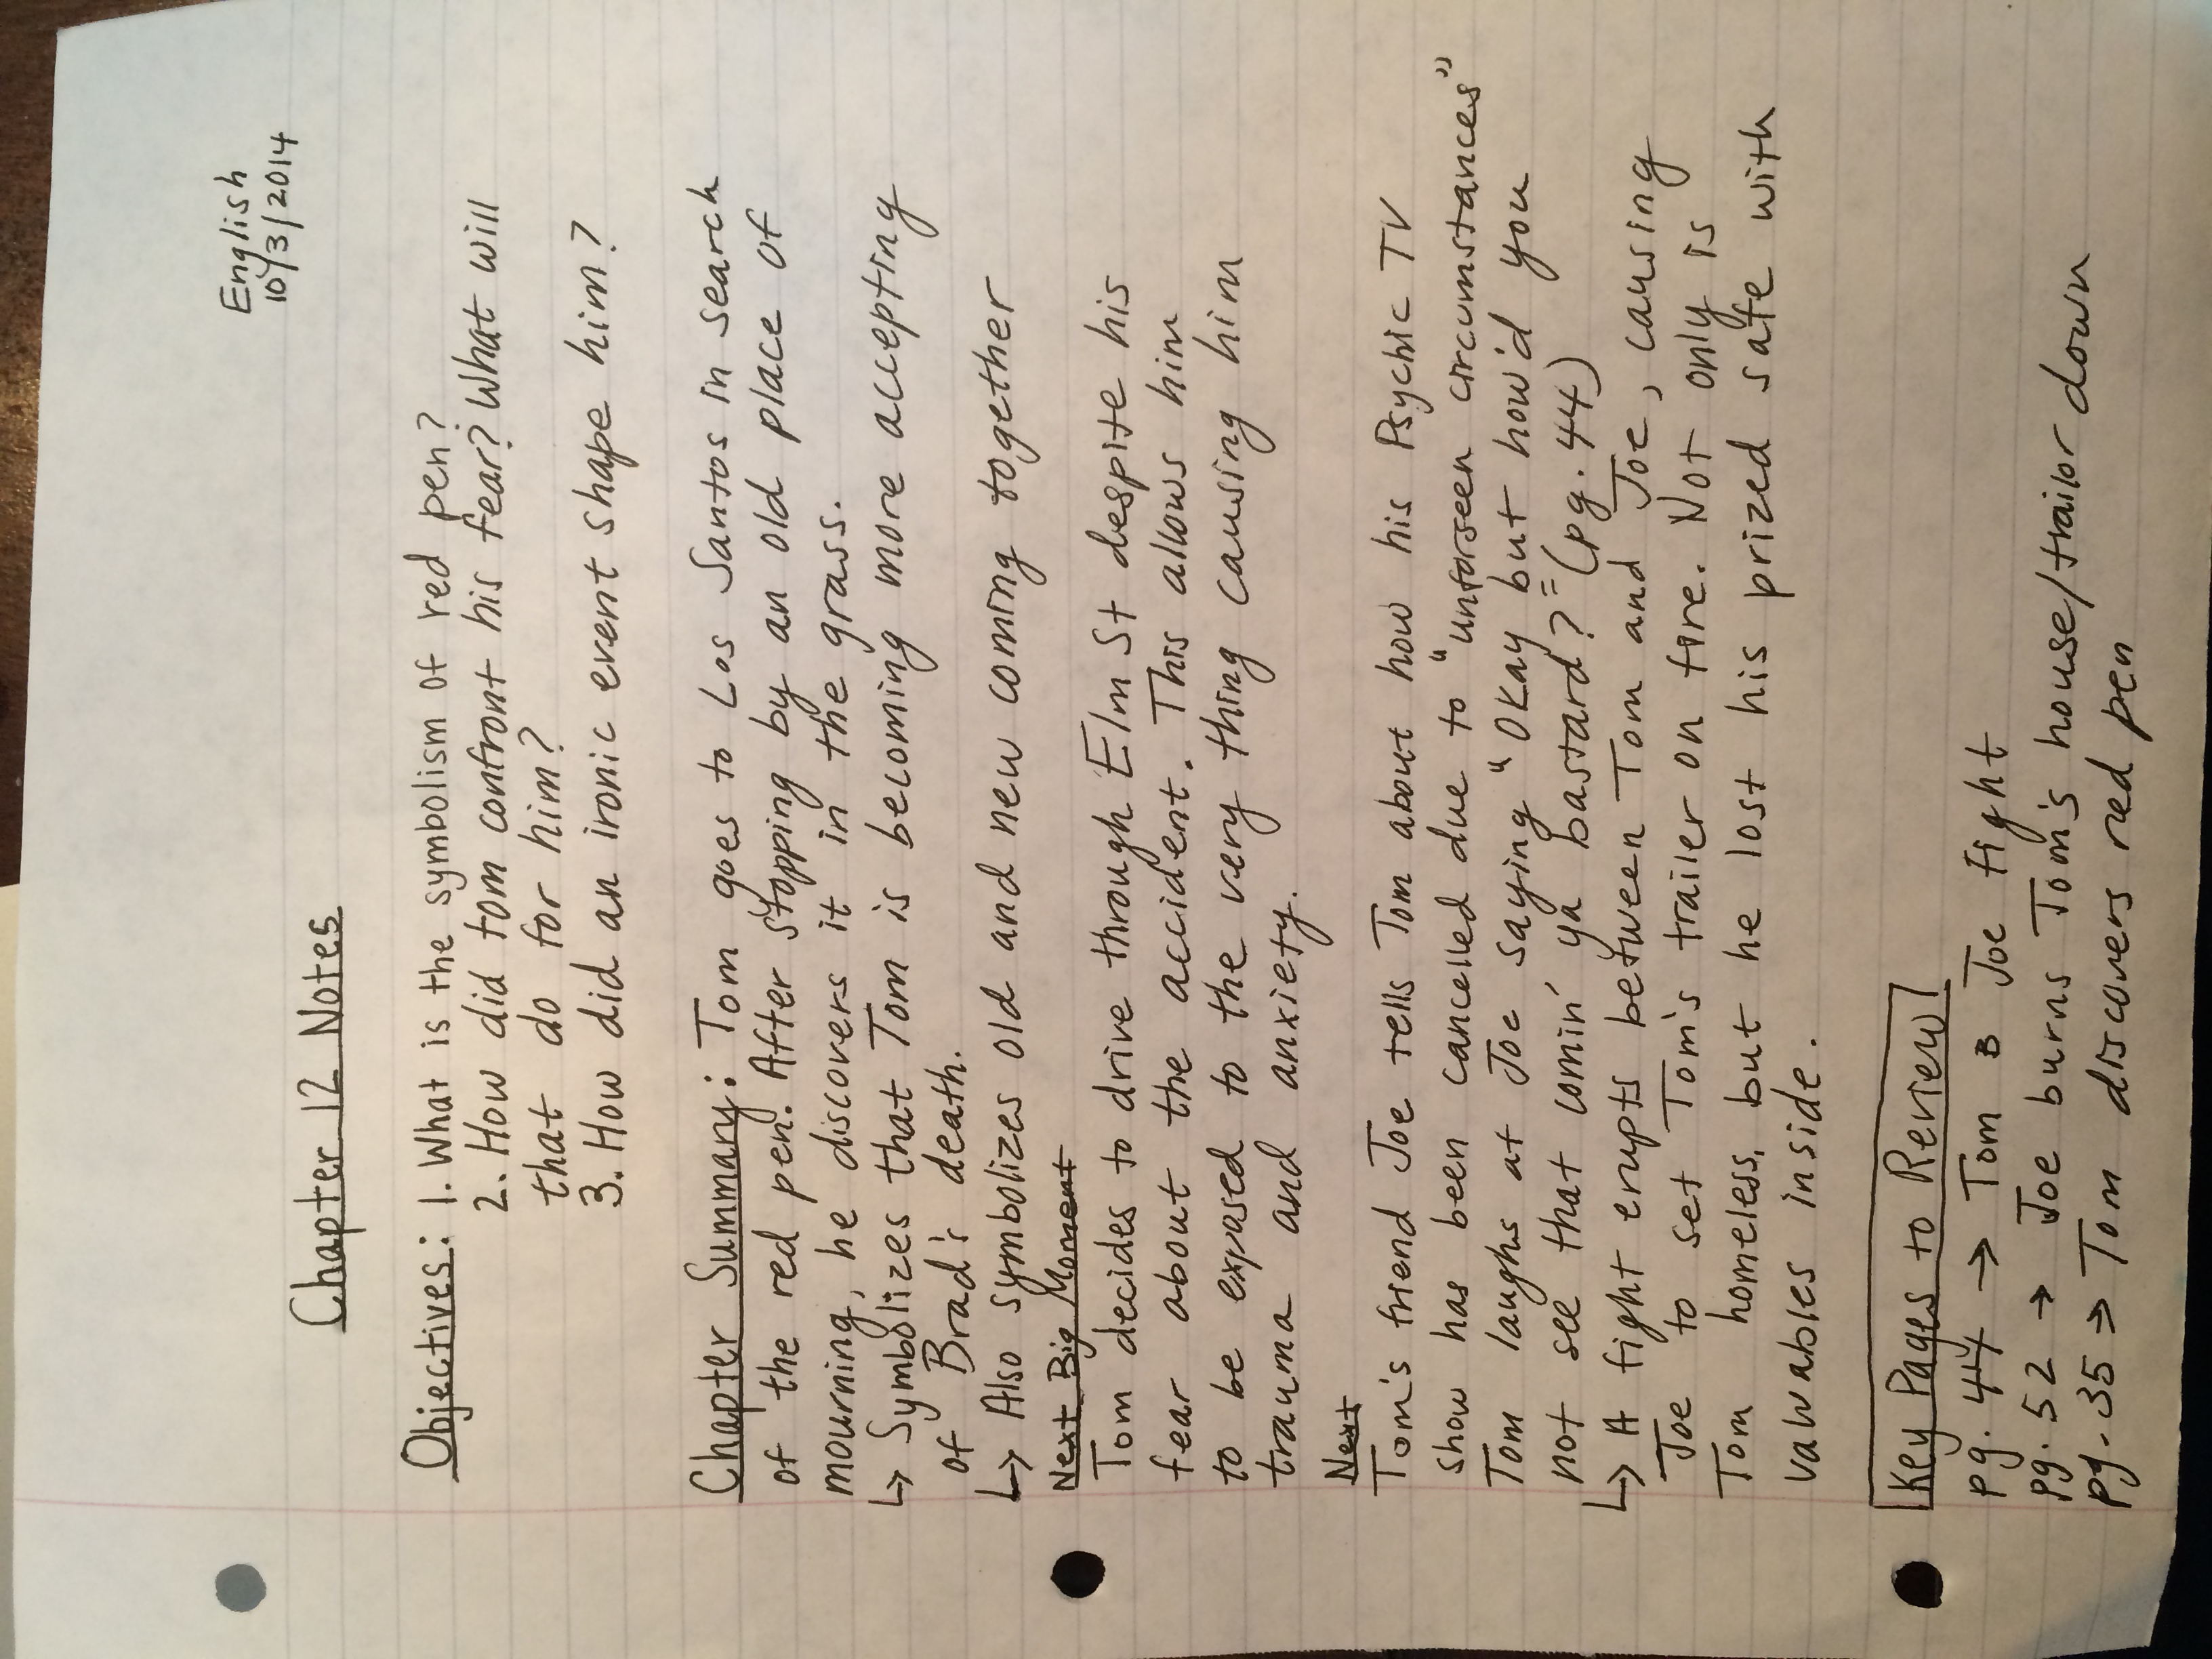 English
10/3/2014
Chapter 12 Notes
Objectives: 1. What is the symbolism of red pen?
2. How did tom confront his fear? What will
that do for him?
3. How did an ironic event shape him?
Chapter Summary: Tom goes to Los Santos in search
of the red pen. After stopping by an old place of
mourning, he discovers it in the grass.
↳ Symbolizes that Tom is becoming more accepting
of Brad's death.
↳ Also symbolizes old and new coming together
Next Big Moment
Tom decides to drive through Elm St despite his
fear about the accident. This allows him
to be exposed to the very thing causing him
trauma and anxiety.
Next
Tom's friend Joe tells Tom about how his Psychic TV
show has been cancelled due to "unforseen circumstances"
Tom laughs at Joe saying "Okay but how'd you
not see that comin' ya bastard?" (pg. 44)
↳ A fight erupts between Tom and Joe, causing
Joe to set Tom's trailer on fire. Not only is
Tom homeless, but he lost his prized safe with
valuables inside.
Key Pages to Review
pg. 44 → Tom B Joe fight
pg. 52 → Joe burns Tom's house/trailor down
pg. 35 → Tom discovers red pen